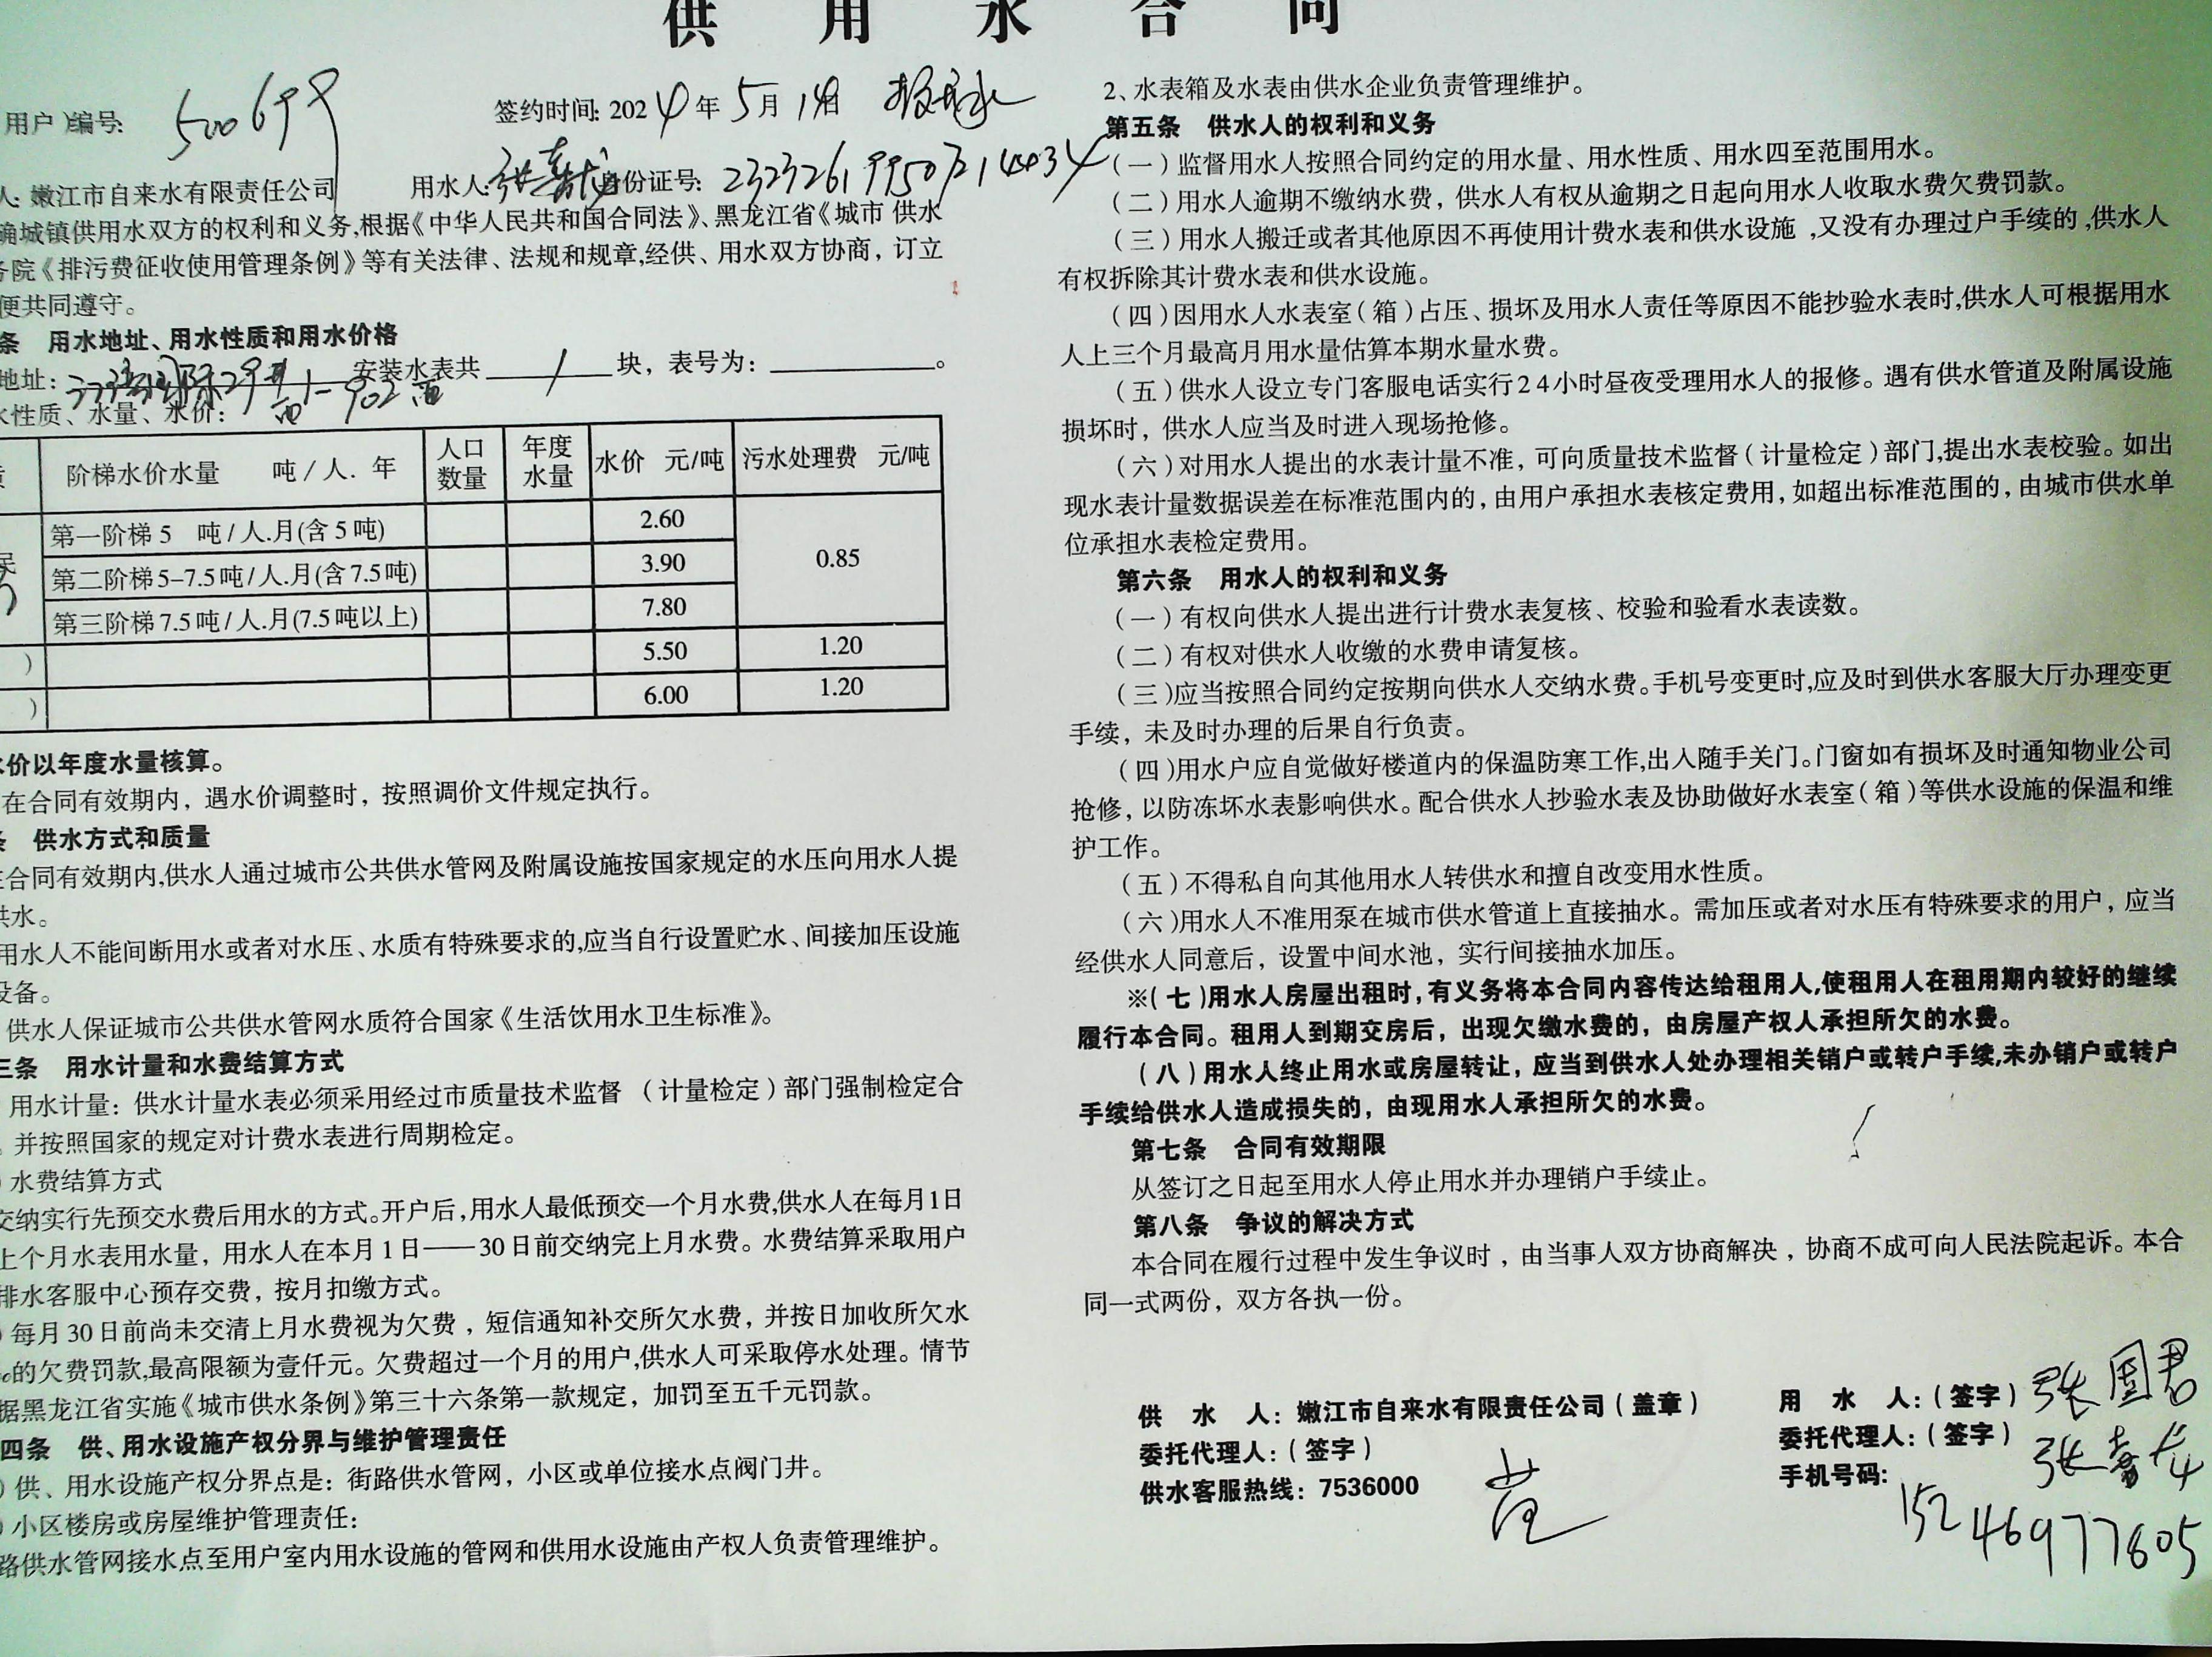 供用水合同
用户)编号: 500699
签约时间: 2024年5月14日
人: 嫩江市自来水有限责任公司 用水人: 张喜龙 身份证号:
确城镇供用水双方的权利和义务,根据《中华人民共和国合同法》、黑龙江省《城市 供水
务院《排污费征收使用管理条例》等有关法律、法规和规章,经供、用水双方协商，订立
便共同遵守。
条 用水地址、用水性质和用水价格
地址: 安装水表共 1 块，表号为: 。
水性质、水量、水价: 1-902
质 阶梯水价水量 吨/人. 年 人口数量 年度水量 水价 元/吨 污水处理费 元/吨
民 第一阶梯 5 吨/人.月(含 5 吨) 2.60 0.85
第二阶梯 5-7.5 吨/人.月(含 7.5 吨) 3.90
第三阶梯 7.5 吨/人.月(7.5 吨以上) 7.80
) 5.50 1.20
) 6.00 1.20
水价以年度水量核算。
在合同有效期内，遇水价调整时，按照调价文件规定执行。
条 供水方式和质量
在合同有效期内,供水人通过城市公共供水管网及附属设施按国家规定的水压向用水人提
供水。
用水人不能间断用水或者对水压、水质有特殊要求的,应当自行设置贮水、间接加压设施
设备。
供水人保证城市公共供水管网水质符合国家《生活饮用水卫生标准》。
三条 用水计量和水费结算方式
用水计量：供水计量水表必须采用经过市质量技术监督（计量检定）部门强制检定合
并按照国家的规定对计费水表进行周期检定。
)水费结算方式
交纳实行先预交水费后用水的方式。开户后,用水人最低预交一个月水费,供水人在每月1日
上个月水表用水量，用水人在本月1日——30日前交纳完上月水费。水费结算采取用户
排水客服中心预存交费，按月扣缴方式。
)每月30日前尚未交清上月水费视为欠费，短信通知补交所欠水费，并按日加收所欠水
的欠费罚款,最高限额为壹仟元。欠费超过一个月的用户,供水人可采取停水处理。情节
据黑龙江省实施《城市供水条例》第三十六条第一款规定，加罚至五千元罚款。
四条 供、用水设施产权分界与维护管理责任
)供、用水设施产权分界点是：街路供水管网，小区或单位接水点阀门井。
)小区楼房或房屋维护管理责任：
路供水管网接水点至用户室内用水设施的管网和供用水设施由产权人负责管理维护。
2、水表箱及水表由供水企业负责管理维护。
第五条 供水人的权利和义务
(一)监督用水人按照合同约定的用水量、用水性质、用水四至范围用水。
(二)用水人逾期不缴纳水费，供水人有权从逾期之日起向用水人收取水费欠费罚款。
(三)用水人搬迁或者其他原因不再使用计费水表和供水设施,又没有办理过户手续的,供水人
有权拆除其计费水表和供水设施。
(四)因用水人水表室(箱)占压、损坏及用水人责任等原因不能抄验水表时,供水人可根据用水
人上三个月最高月用水量估算本期水量水费。
(五)供水人设立专门客服电话实行24小时昼夜受理用水人的报修。遇有供水管道及附属设施
损坏时，供水人应当及时进入现场抢修。
(六)对用水人提出的水表计量不准，可向质量技术监督(计量检定)部门,提出水表校验。如出
现水表计量数据误差在标准范围内的，由用户承担水表核定费用，如超出标准范围的，由城市供水单
位承担水表检定费用。
第六条 用水人的权利和义务
(一)有权向供水人提出进行计费水表复核、校验和验看水表读数。
(二)有权对供水人收缴的水费申请复核。
(三)应当按照合同约定按期向供水人交纳水费。手机号变更时,应及时到供水客服大厅办理变更
手续，未及时办理的后果自行负责。
(四)用水户应自觉做好楼道内的保温防寒工作,出入随手关门。门窗如有损坏及时通知物业公司
抢修，以防冻坏水表影响供水。配合供水人抄验水表及协助做好水表室(箱)等供水设施的保温和维
护工作。
(五)不得私自向其他用水人转供水和擅自改变用水性质。
(六)用水人不准用泵在城市供水管道上直接抽水。需加压或者对水压有特殊要求的用户，应当
经供水人同意后，设置中间水池，实行间接抽水加压。
※(七)用水人房屋出租时，有义务将本合同内容传达给租用人,使租用人在租用期内较好的继续
履行本合同。租用人到期交房后，出现欠缴水费的，由房屋产权人承担所欠的水费。
(八)用水人终止用水或房屋转让，应当到供水人处办理相关销户或转户手续,未办销户或转户
手续给供水人造成损失的，由现用水人承担所欠的水费。
第七条 合同有效期限
从签订之日起至用水人停止用水并办理销户手续止。
第八条 争议的解决方式
本合同在履行过程中发生争议时，由当事人双方协商解决，协商不成可向人民法院起诉。本合
同一式两份，双方各执一份。
供 水 人：嫩江市自来水有限责任公司(盖章)
委托代理人：(签字)
供水客服热线：7536000
用 水 人：(签字) 张国君
委托代理人：(签字) 张喜龙
手机号码: 15246977805